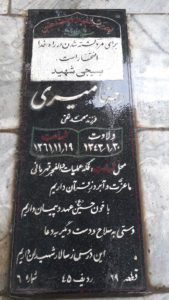 برای مردان شدن در راه خدا
افتخار است
بسیجی شهید
میری
فرزند محمد تقی
ولادت شهادت
۱۳۴۳/۱/۳۰ ۱۳۶۱/۱۱/۱۹
محل شهادت: فکه عملیات: والفجر مقدماتی
ما عزت و آبرو ز قرآن داریم
با خون حسین عهد و پیمان داریم
دستی به سلاح و دست دیگر به دعا
این درس ز سالار شهیدان داریم
قطعه ۶۹ ردیف ۴۵ شماره ۶